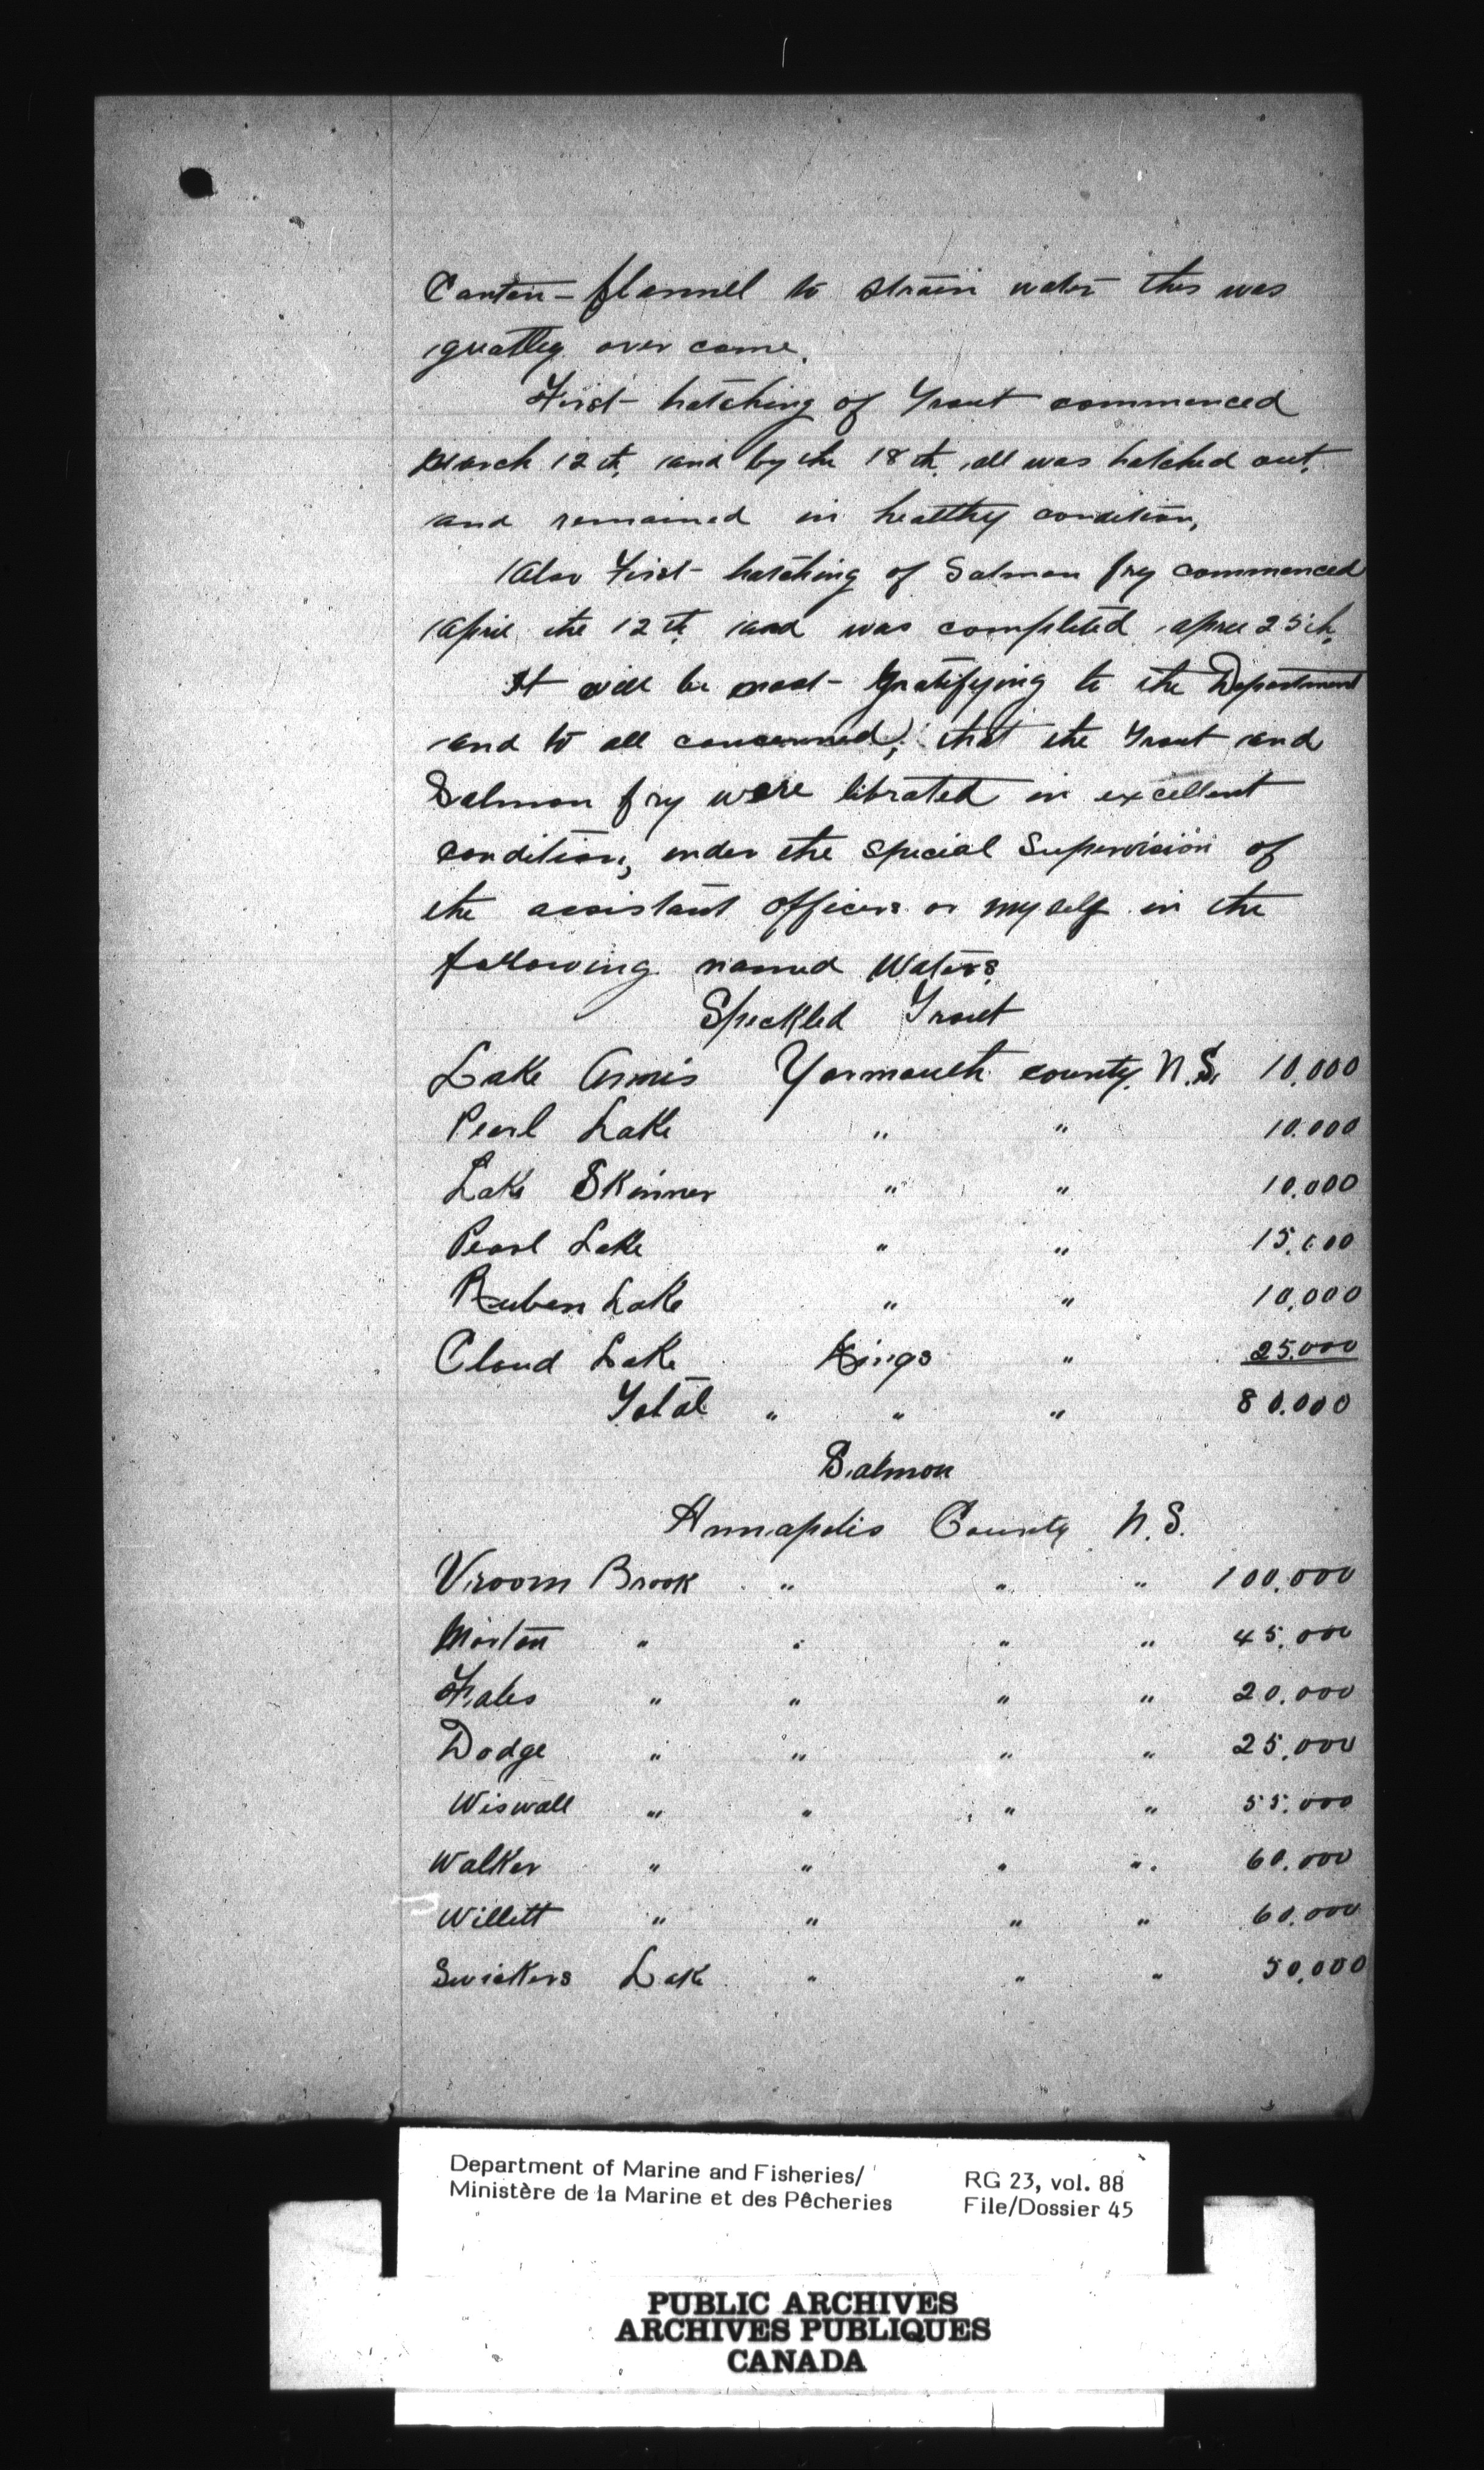 Canton-flannel to strain water this was
greatley over come.
First hatching of Trout commenced
March 12th, and by the 18th, all was hatched out,
and remained in healthy condition,
Also First hatching of Salmon fry commenced
April the 12th and was completed April 25th.
It will be most gratifying to the Department
and to all concerned, that the Trout and
Salmon fry were librated in excellent
condition, under the special Supervision of
the assistant officers or myself in the
following named Waters.
Speckled Trout
Lake Annis Yarmouth county. N.S. 10,000
Pearl Lake " " 10.000
Lake Skinner " " 10.000
Pearl Lake " " 15.000
Ruben Lake " " 10,000
Cloud Lake Kings " 25.000
Total " " " 80.000
Salmon
Annapolis County N.S.
Vroom Brook " " " 100.000
Morton " " " " 45.000
Fales " " " " 20.000
Dodge " " " " 25.000
Wiswall " " " " 55.000
Walker " " " " 60.000
Willett " " " " 60.000
Swickers Lake " " " 50,000
Department of Marine and Fisheries/
Ministère de la Marine et des Pêcheries
RG 23, vol. 88
File/Dossier 45
PUBLIC ARCHIVES
ARCHIVES PUBLIQUES
CANADA